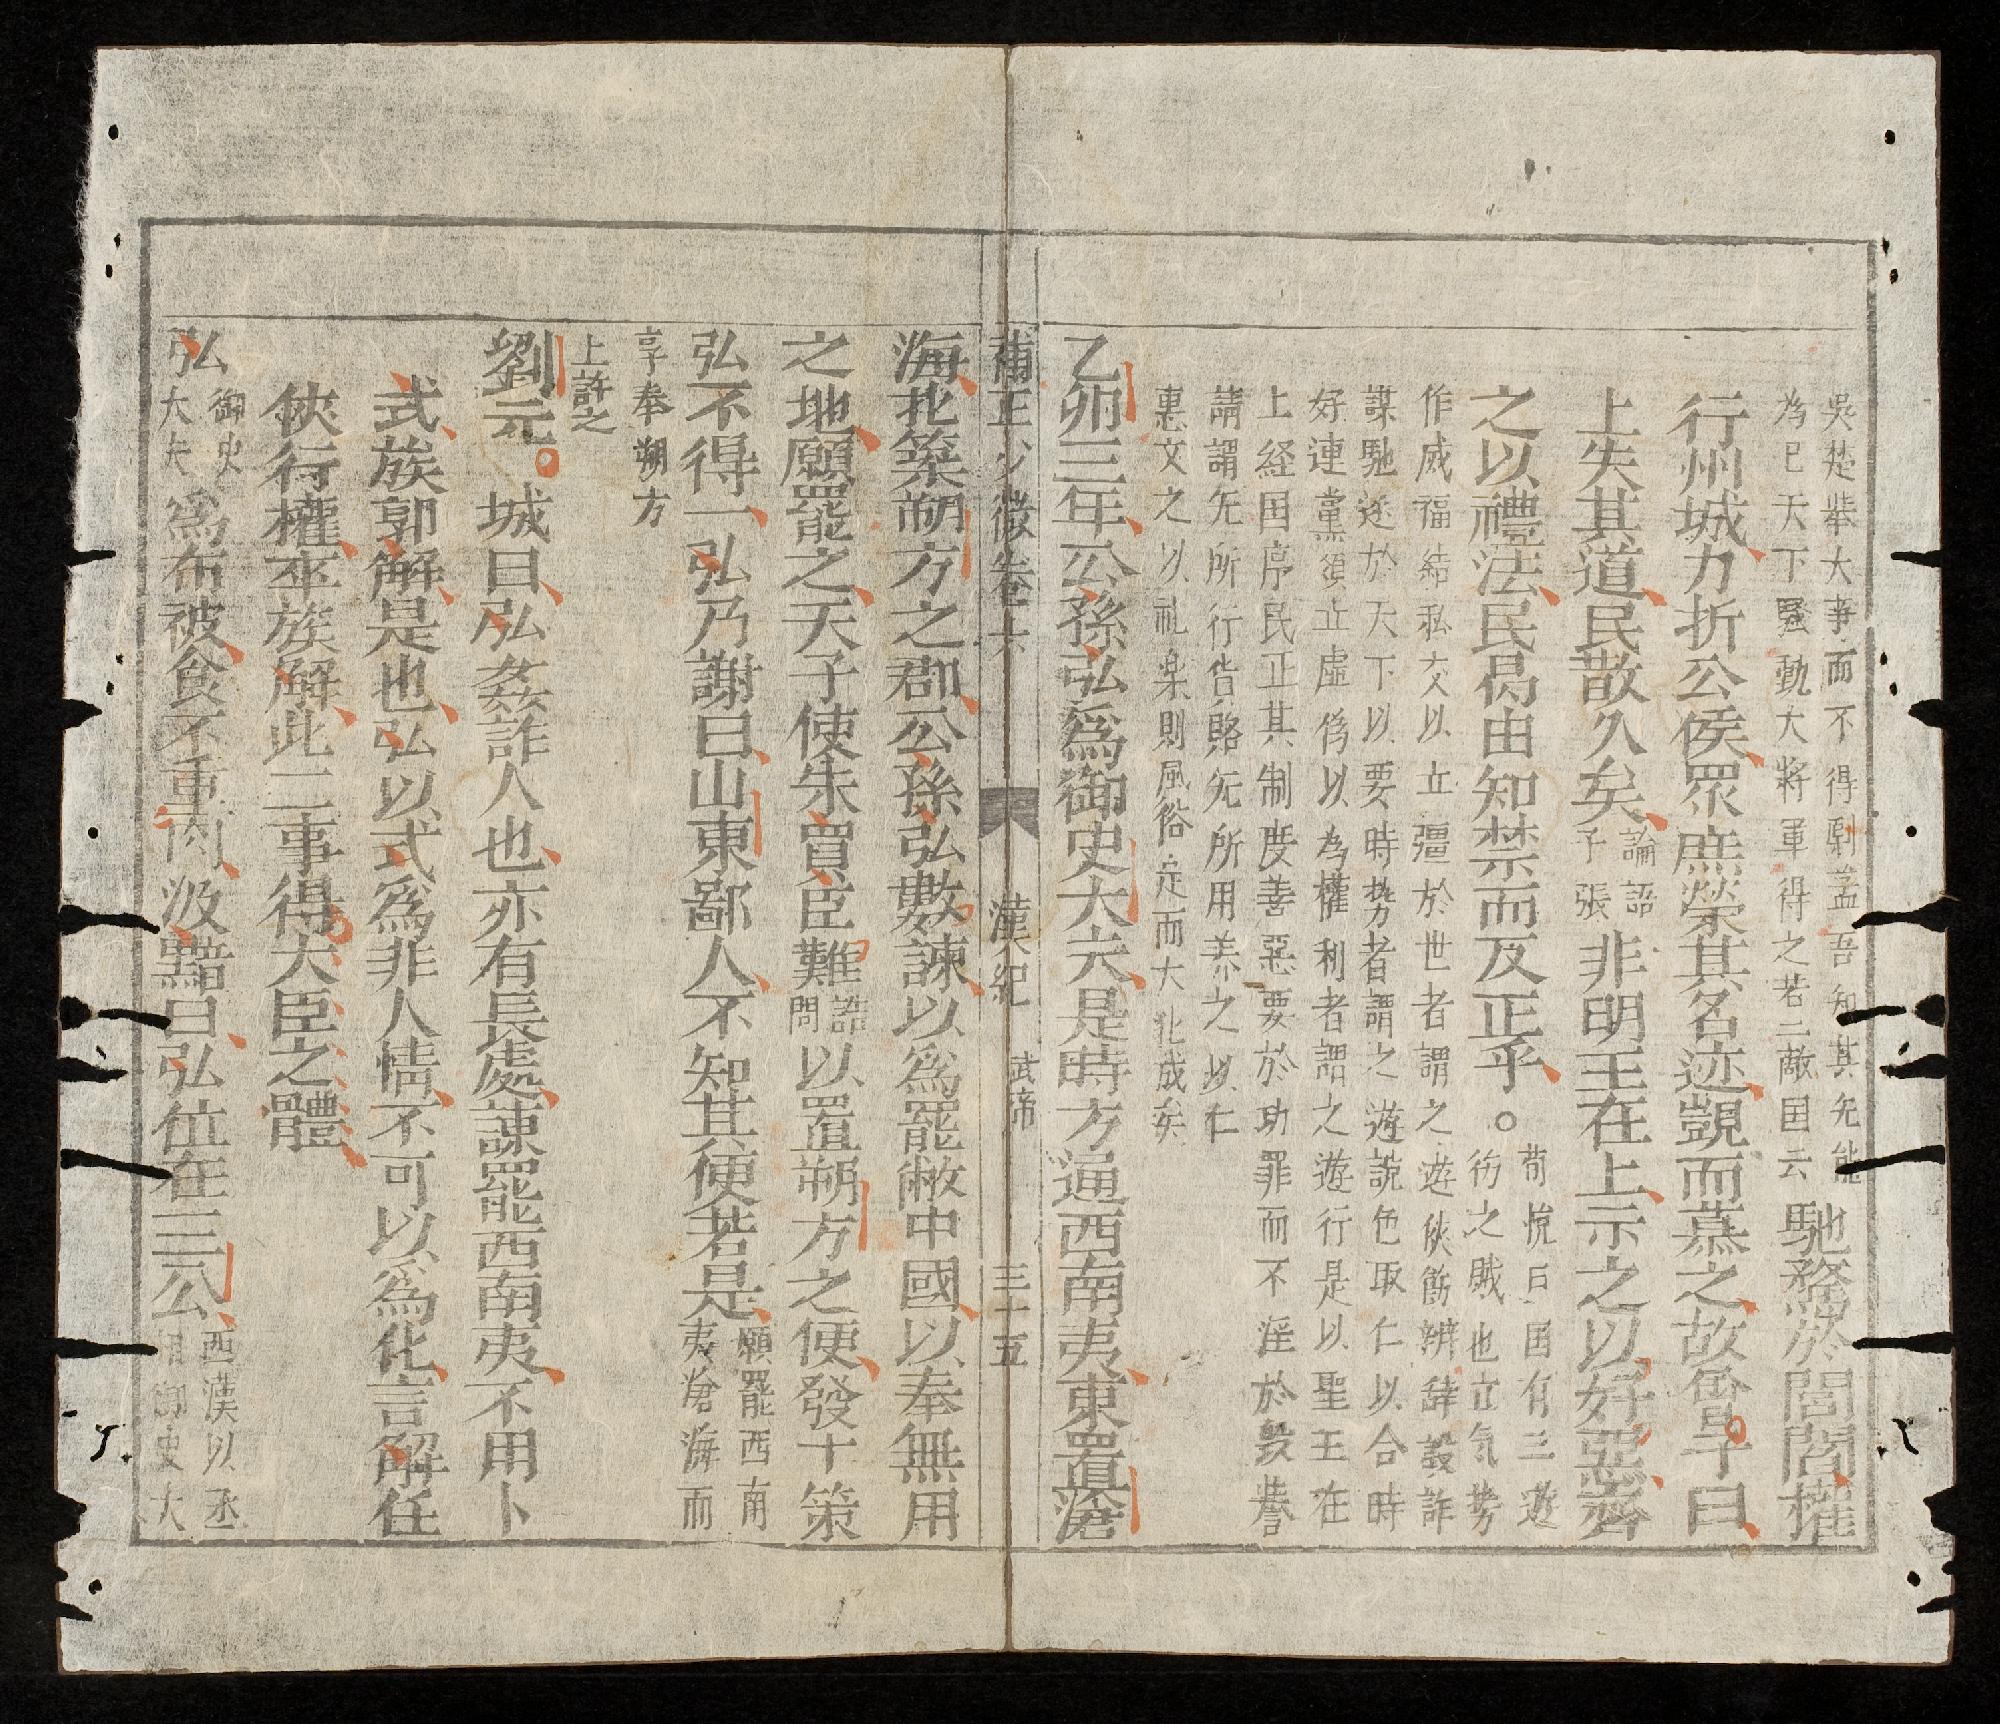 吳楚举大事而不得劇孟吾知其无能
為已天下騷動大將軍得之若一敵国云
馳騖於閭閻權
行州城力折公侯眾庶榮其名迹覬而慕之故曾子曰
上失其道民散久矣
論語
子張
非明王在上示之以好惡齊
之以禮法民曷由知禁而反正乎○
荀悅曰国有三遊
行之賊也立気势
作威福結私交以立彊於世者謂之遊俠飾辨辞設詐
謀馳逐於天下以要時势者謂之遊說色取仁以合時
好連黨類立虛偽以為權利者謂之遊行是以聖王在
上経国序民正其制度善惡要於功罪而不淫於毀誉
請謂无所行告賂无所用养之以仁
惠文之以礼楽則風俗定而大化成矣
乙卯三年公孫弘爲御史大夫是時方通西南夷東置滄
補正少微卷六 漢紀 武帝 三十五
海北築朔方之郡公孫弘數諫以爲罷敝中國以奉無用
之地願罷之天子使朱買臣難
詰
問
以置朔方之便發十策
弘不得一弘乃謝曰山東鄙人不知其便若是
願罷西南
夷滄海而
享奉朔方
上許之
劉元城曰弘姦詐人也亦有長處諫罷西南夷不用卜
式族郭解是也弘以式爲非人情不可以爲化言解任
俠行權卒族解此二事得大臣之體
弘
御史
大夫
爲布被食不重肉汲黯曰弘位在三公
西漢以丞
相御史大